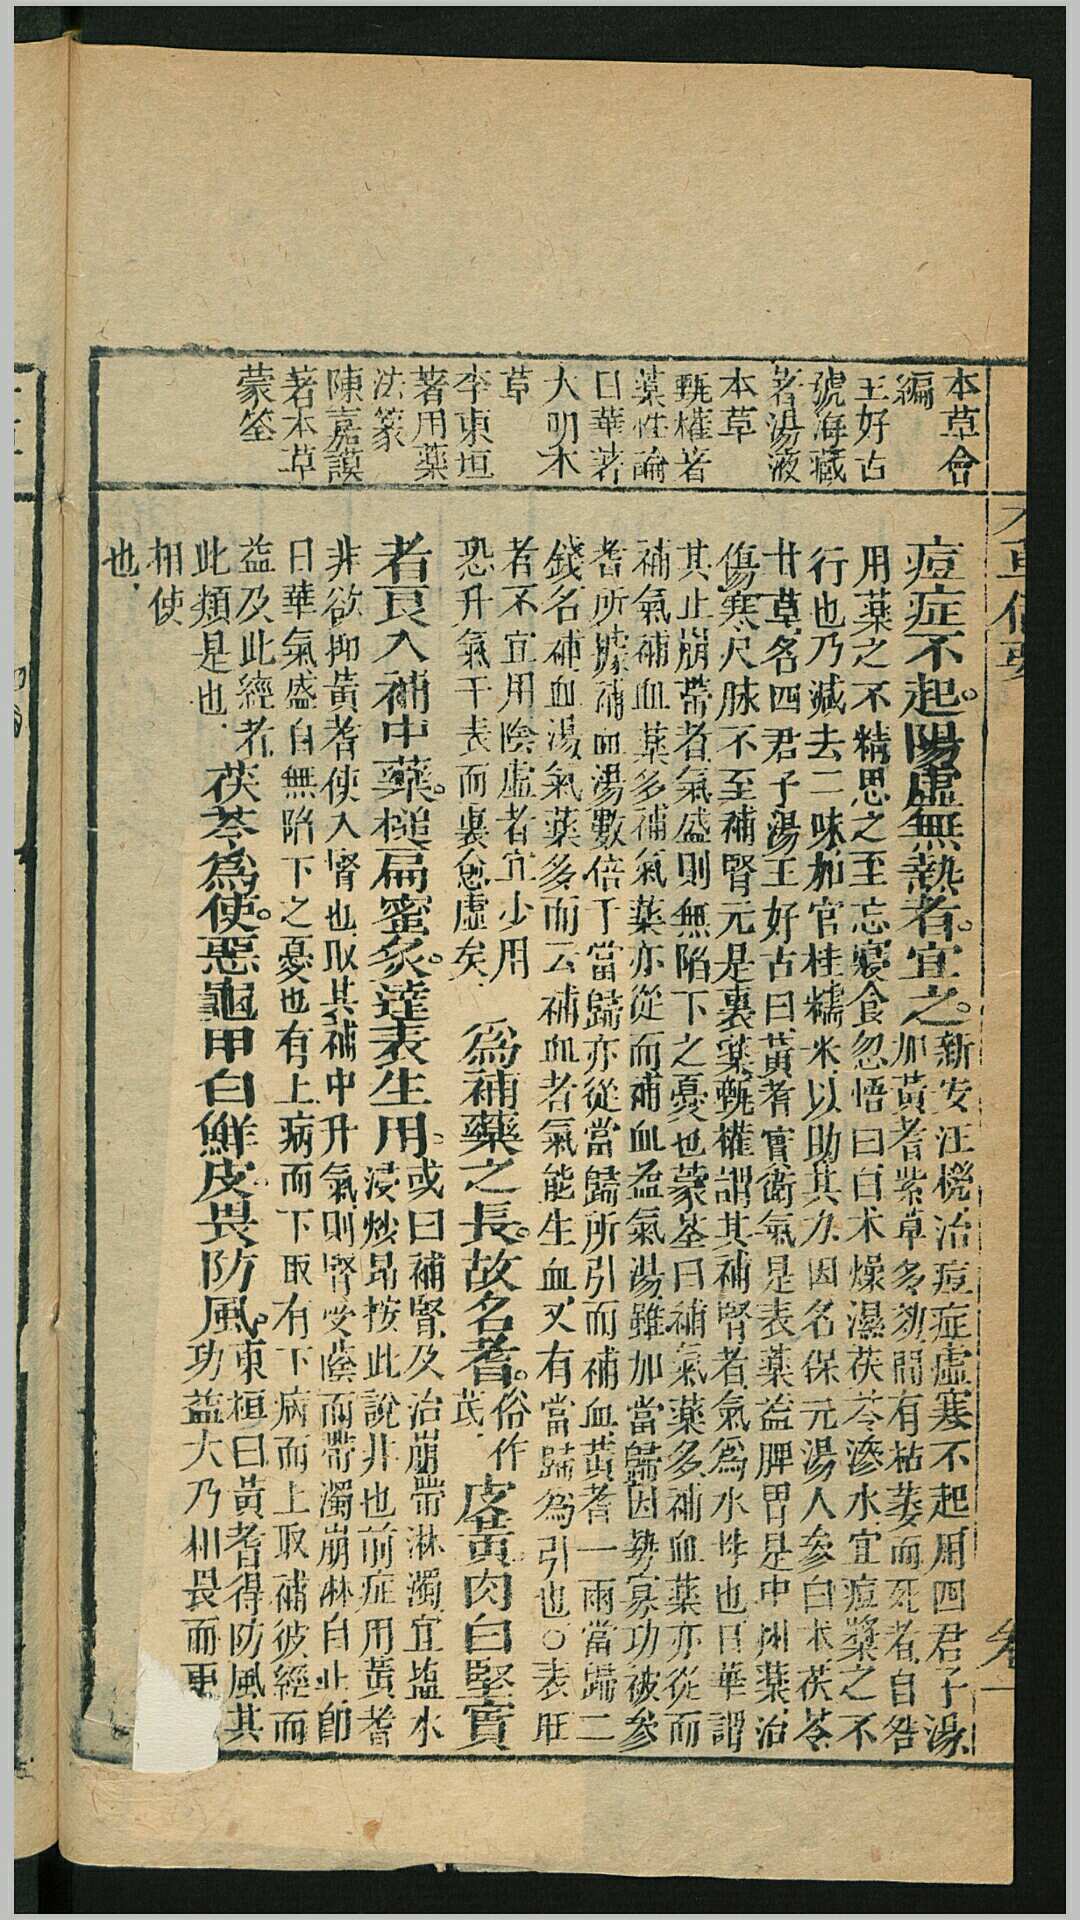 本草合
編
王好古
號海藏
著湯液
本草
甄權著
藥性論
日華著
大明本
草
李東垣
著用藥
法篆
陳嘉謨
著本草
蒙筌
痘症不起。陽虛無熱者。宜之。新安汪機治痘症虛寒不起用四君子湯
加黃耆紫草多効間有枯萎而死者自咎
用藥之不精思之至忘寢食忽悟曰白朮燥濕茯苓滲水宜痘漿之不
行也乃減去二味加官桂糯米以助其力因名保元湯人參白朮茯苓
甘草名四君子湯王好古曰黃耆實衛氣是表藥益脾胃是中州藥治
傷寒尺脉不至補腎元是裏藥甄權謂其補腎者氣為水母也日華謂
其止崩帶者氣盛則無陷下之憂也蒙筌曰補氣藥多補血藥亦從而
補氣補血藥多補氣藥亦從而補血益氣湯雖加當歸因勢寡功被參
耆所據補血湯數倍于當歸亦從當歸所引而補血黃耆一兩當歸二
錢名補血湯氣藥多而云補血者氣能生血又有當歸為引也○表旺
者不宜用陰虛者宜少用
恐升氣于表而裏愈虛矣
為補藥之長。故名耆。俗作
芪
皮黃肉白堅實
者良入補中藥。槌扁蜜炙。達表生用。或曰補腎及治崩帶淋濁宜塩水
浸炒昂按此說非也前症用黃耆
非欲抑黃耆使入腎也取其補中升氣則腎受廕而帶濁崩淋自止卽
日華氣盛自無陷下之憂也有上病而下取有下病而上取補彼經而
益及此經者
此類是也
茯苓為使。惡龜甲白鮮皮畏防風。東垣曰黃耆得防風其
功益大乃相畏而更
相使
也
卷一